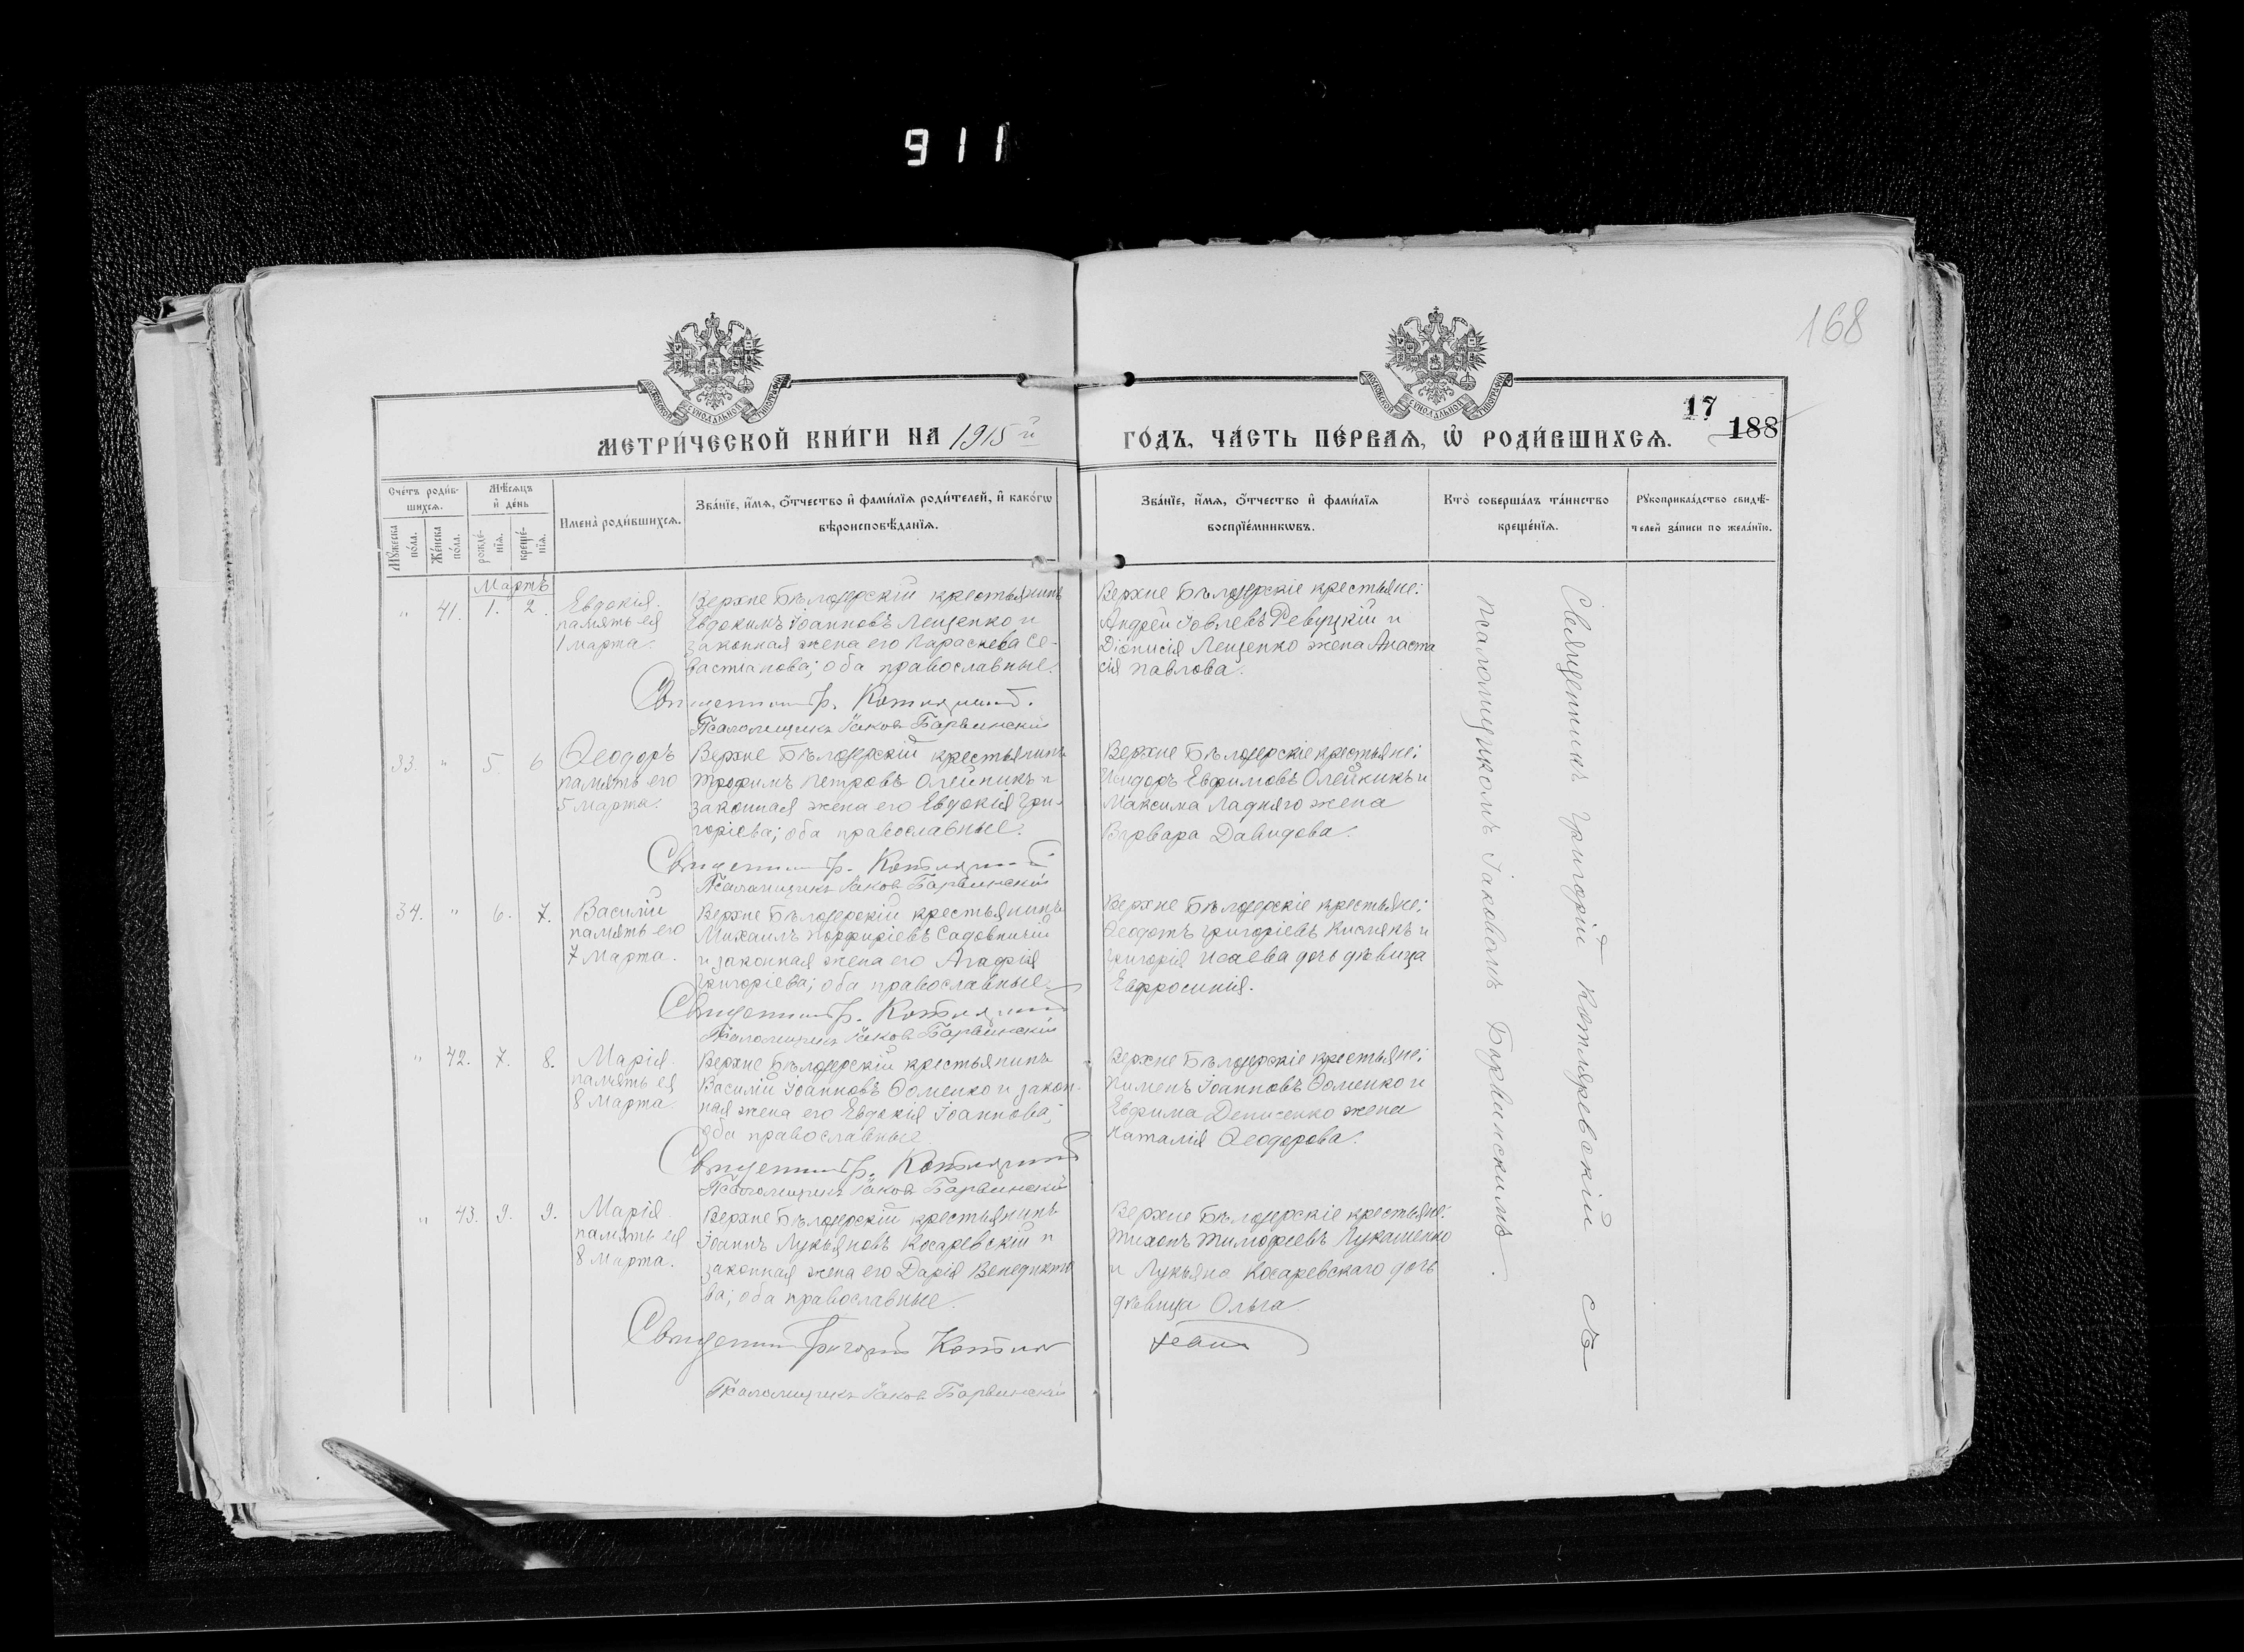 911
168
17
188
МОСКОВСКОЙ СѴНОДАЛЬНОЙ ТИПОГРАФІИ
МОСКОВСКОЙ СѴНОДАЛЬНОЙ ТИПОГРАФІИ
МЕТРИ́ЧЕСКОЙ КНИ́ГИ НА 1915й
ГО́ДЪ, ЧА́СТЬ ПЕ́РВАѦ, Ѡ҆ РОДИ́ВШИХСѦ.
Сче́тъ роди́в-
шихсѧ.
Мѣ́сѧцъ
и҆ де́нь
Мꙋ́жеска
по́ла.
Же́нска
по́ла.
рожде́-
нїѧ.
креще́-
нїѧ.
Имена̀ роди́вшихсѧ.
Зва́нїе, и҆́мѧ, ѻ҆́тчество и҆ фами́лїѧ роди́телей, и҆ како́гѡ
вѣроисповѣ́данїѧ.
Зва́нїе, и҆́мѧ, ѻ҆́тчество и҆ фами́лїѧ
воспрїе́мникѡвъ.
Кто̀ соверша́лъ та́инство
креще́нїѧ.
Рꙋкоприкла́дство свидѣ́-
телей за́писи по жела́нїю.
Мартъ
" 41. 1. 2.
Евдокія.
память ея
1 марта.
Верхне Бѣлозерскій крестьянинъ
Евдокимъ Іоанновъ Лещенко и
законная жена его Параскева Се-
вастианова; оба православные.
Священникъ Гр. Котляревскій.
Псаломщикъ Іаковъ Барвинскій
Верхне Бѣлозерскіе крестьяне:
Андрей Іовлевъ Ревуцкій и
Діонисія Лещенко жена Анаста
сія Павлова.
33. " 5. 6
Ѳеодоръ
память его
5 марта.
Верхне Бѣлозерскій крестьянинъ
Трофимъ Петровъ Олейникъ и
законная жена его Евдокія Гри-
горіева; оба православные.
Священникъ Гр. Котляревскій
Псаломщикъ Іаковъ Барвинскій
Верхне Бѣлозерскіе крестьяне:
Исидоръ Евфимовъ Олейникъ и
Максима Ладняго жена
Варвара Давидова.
34. " 6. 7.
Василій
память его
7 Марта.
Верхне Бѣлозерскій крестьянинъ
Михаилъ Порфиріевъ Садовничій
и законная жена его Агафія
Григоріева; оба православные.
Священникъ Гр. Котляревскій
Псаломщикъ Іаковъ Барвинскій
Верхне Бѣлозерскіе крестьяне:
Ѳеодотъ Григоріевъ и
Григорія Исаева дочь дѣвица
Евфросинія.
" 42. 7. 8.
Марія.
память ея
8 Марта.
Верхне Бѣлозерскій крестьянинъ
Василій Іоанновъ Ѳоменко и закон-
ная жена его Евдокія Іоаннова;
оба православные.
Священникъ Гр. Котляревскій
Псаломщикъ Іаковъ Барвинскій
Верхне Бѣлозерскіе крестьяне:
Пименъ Іоанновъ Ѳоменко и
Евфима Денисенко жена
Наталія Ѳеодорова.
" 43. 9. 9.
Марія.
память ея
8 Марта.
Верхне Бѣлозерскій крестьянинъ
Іоаннъ Лукьяновъ Косаревскій и
законная жена его Дарія Венедикто
ва; оба православные.
Священникъ Григорій Котля
ревскій
Псаломщикъ Іаковъ Барвинскій
Верхне Бѣлозерскіе крестьяне:
Тихонъ Тимофеевъ Лукашенко
и Лукьяна Косаревскаго дочь
дѣвица Ольга
Священникъ Григорій Котляревскій съ
псаломщикомъ Іаковомъ Барвинскимъ.